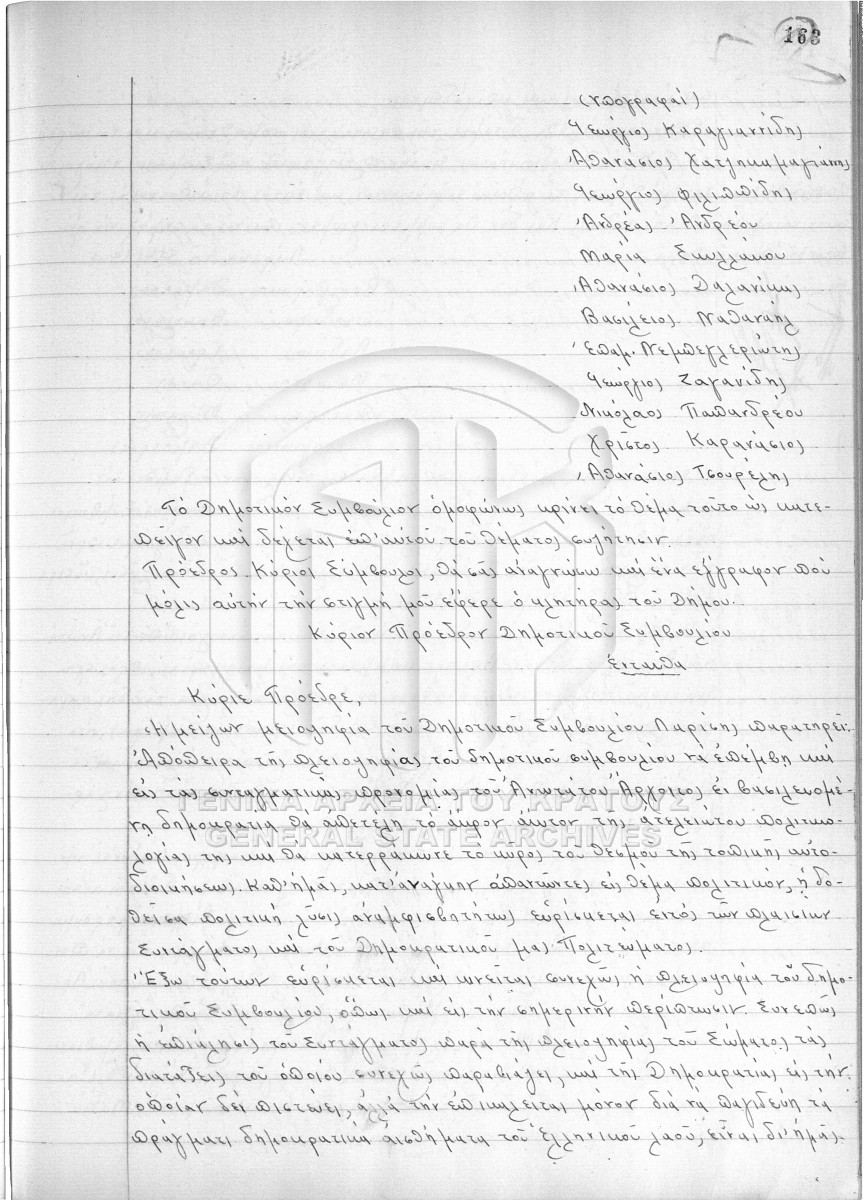 163
(υπογραφαί)
Γεώργιος Καραγιαννίδης
Αθανάσιος Χατζηκαμαγιάννης
Γεώργιος Φιλιππίδης
Ἀνδρέας Ἀνδρέου
Μαρία Σκυλλάκου
Ἀθανάσιος Δαλανίκας
Βασίλειος Ναθαναήλ
Ἐπαμ. Νεμπεγλεριώτης
Γεώργιος Ζαγανίδης
Νικόλαος Παπανδρέου
Χρίστος Καρανάσιος
Ἀθανάσιος Τσουρέλης
Τό Δημοτικόν Συμβούλιον ὁμοφώνως κρίνει τό θέμα τοῦτο ὡς κατε-
πεῖγον καί δέχεται ἐπ' αὐτοῦ τοῦ θέματος συζήτησιν.
Πρόεδρος. Κύριοι Σύμβουλοι, θά σᾶς ἀναγνώσω καί ἕνα ἔγγραφον πού
μόλις αὐτήν τήν στιγμή μοῦ ἔφερε ὁ κλητήρας τοῦ Δήμου.
Κύριον Πρόεδρον Δημοτικοῦ Συμβουλίου
Ἐνταῦθα
Κύριε Πρόεδρε,
Ἡ μείζων μειοψηφία τοῦ Δημοτικοῦ Συμβουλίου Λαρίσης παρατηρεῖ:
Ἀπόπειρα τῆς πλειοψηφίας τοῦ δημοτικοῦ συμβουλίου νά ἐπέμβη καί
εἰς τάς συνταγματικάς προνομίας τοῦ Ἀνωτάτου Ἄρχοντος ἐν βασιλευομέ-
νη δημοκρατία θα ἀπετέλη τό ἄκρον ἄωτον της ἀτελειώτου πολιτικο-
λογίας της και θα κατερράκωνε τό κῦρος τοῦ θεσμοῦ τῆς τοπικῆς αὐτο-
διοικήσεως. Καθ' ἡμᾶς, κατ' ἀνάγκην ἀπαντῶντες εἰς θέμα πολιτικόν, ἡ δο-
θεῖσα πολιτική λύσις ἀναμφισβητήτως εὑρίσκεται ἐντός τῶν πλαισίων
Συντάγματος καί τοῦ Δημοκρατικοῦ μας Πολιτεύματος.
Ἔξω τούτων εὑρίσκεται καί κινεῖται συνεχῶς ἡ πλειοψηφία τοῦ δημο-
τικοῦ Συμβουλίου, ὅπως καί εἰς τήν σημερινήν περίπτωσιν. Συνεπῶς
ἡ ἐπίκλησις τοῦ Συντάγματος παρά τῆς πλειοψηφίας τοῦ Σώματος τάς
διατάξεις τοῦ ὁποίου συνεχῶς παραβιάζει, καί τῆς Δημοκρατίας εἰς τήν
ὁποίαν δέν πιστεύει, ἀλλά τήν ἐπικαλεῖται μόνον διά νά παγιδεύη τά
πράγματι δημοκρατικά αἰσθήματα τοῦ Ἑλληνικοῦ λαοῦ, εἶναι δι' ἡμᾶς
ΓΕΝΙΚΑ ΑΡΧΕΙΑ ΤΟΥ ΚΡΑΤΟΥΣ
GENERAL STATE ARCHIVES